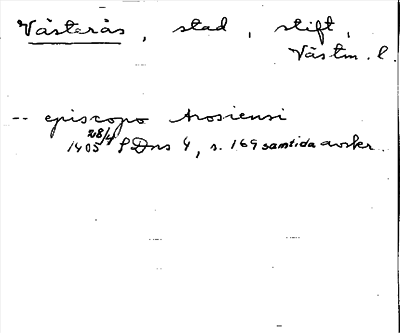 Västerås, stad, stift,
Västm. l.
-- episcopo Arosiensi
1405 28/4 SDns 4, s. 169 samtida avskr.